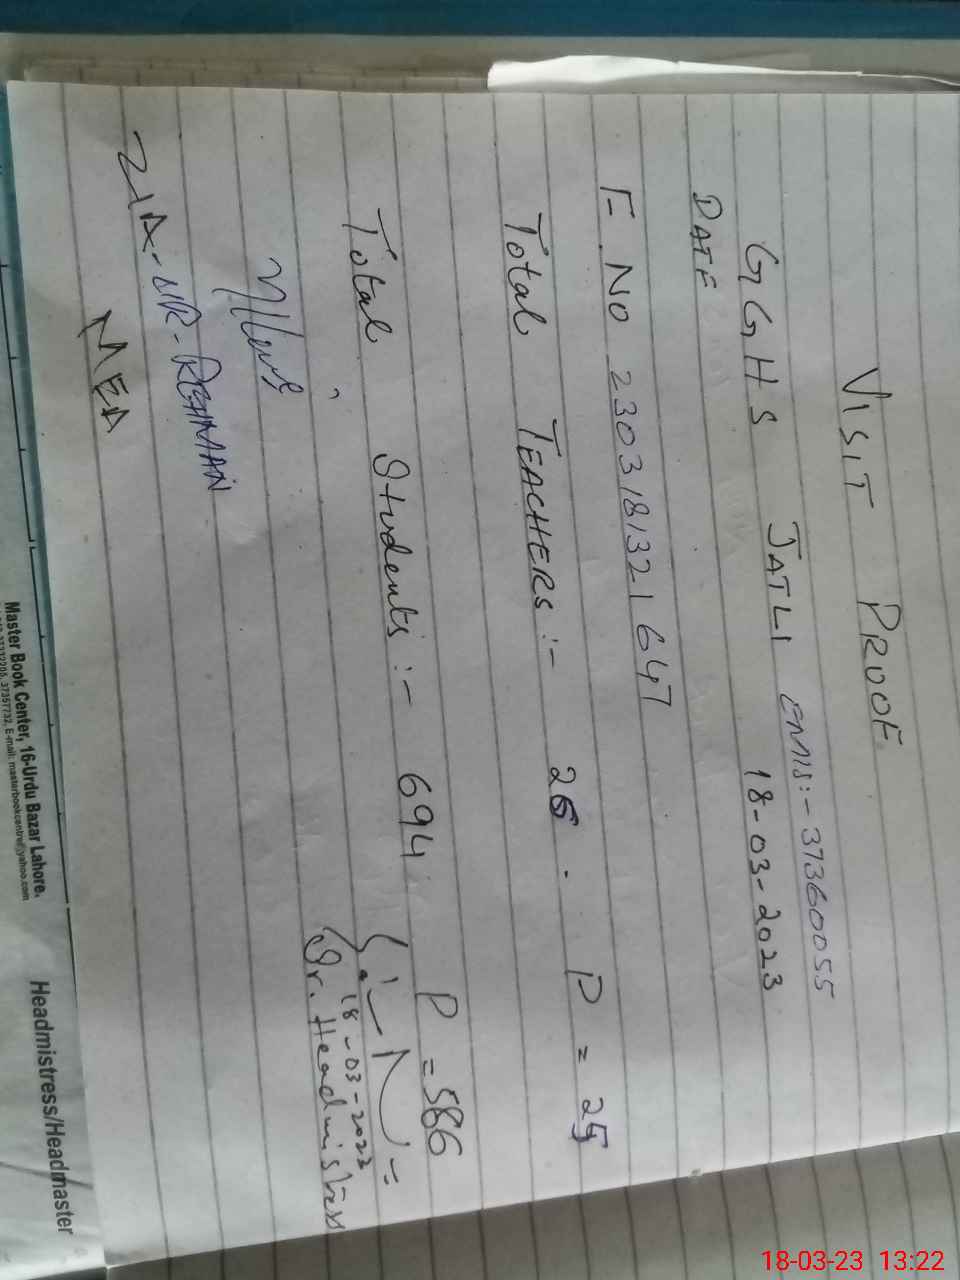 VISIT PROOF
EMIS:- 37360055
GGHS JATLI 18-03-2023
DATE
F NO 2303181321647
Total TEACHERS:- 26. P = 25
Total Students:- 694 P = 586
18-03-2023
Sr. Headmistress
ZIA-UR-REHMAN
MEA
Headmistress/Headmaster
Master Book Center, 16-Urdu Bazar Lahore.
37357732, E-mail: masterbookcentre@yahoo.com
18-03-23 13:22